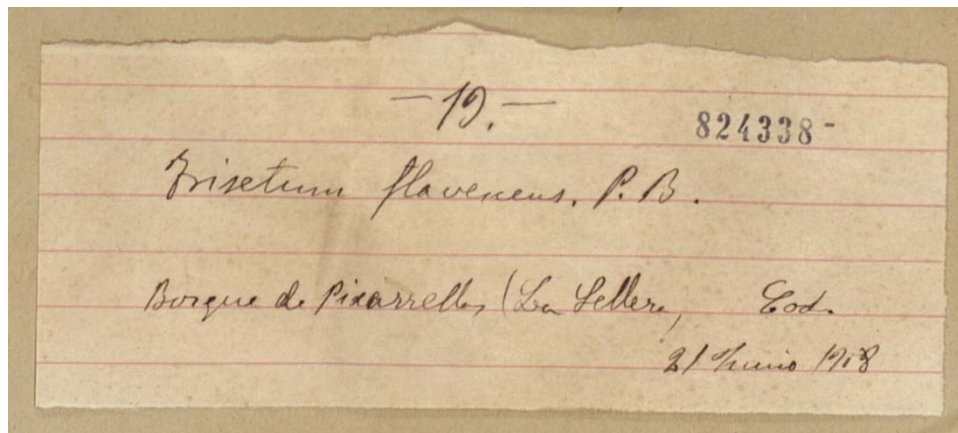 — 19. —
824338-
Trisetum flavescens. P. B.
Bosque de Pixarrelles (La Sellera) Cod.
21 Junio 1908